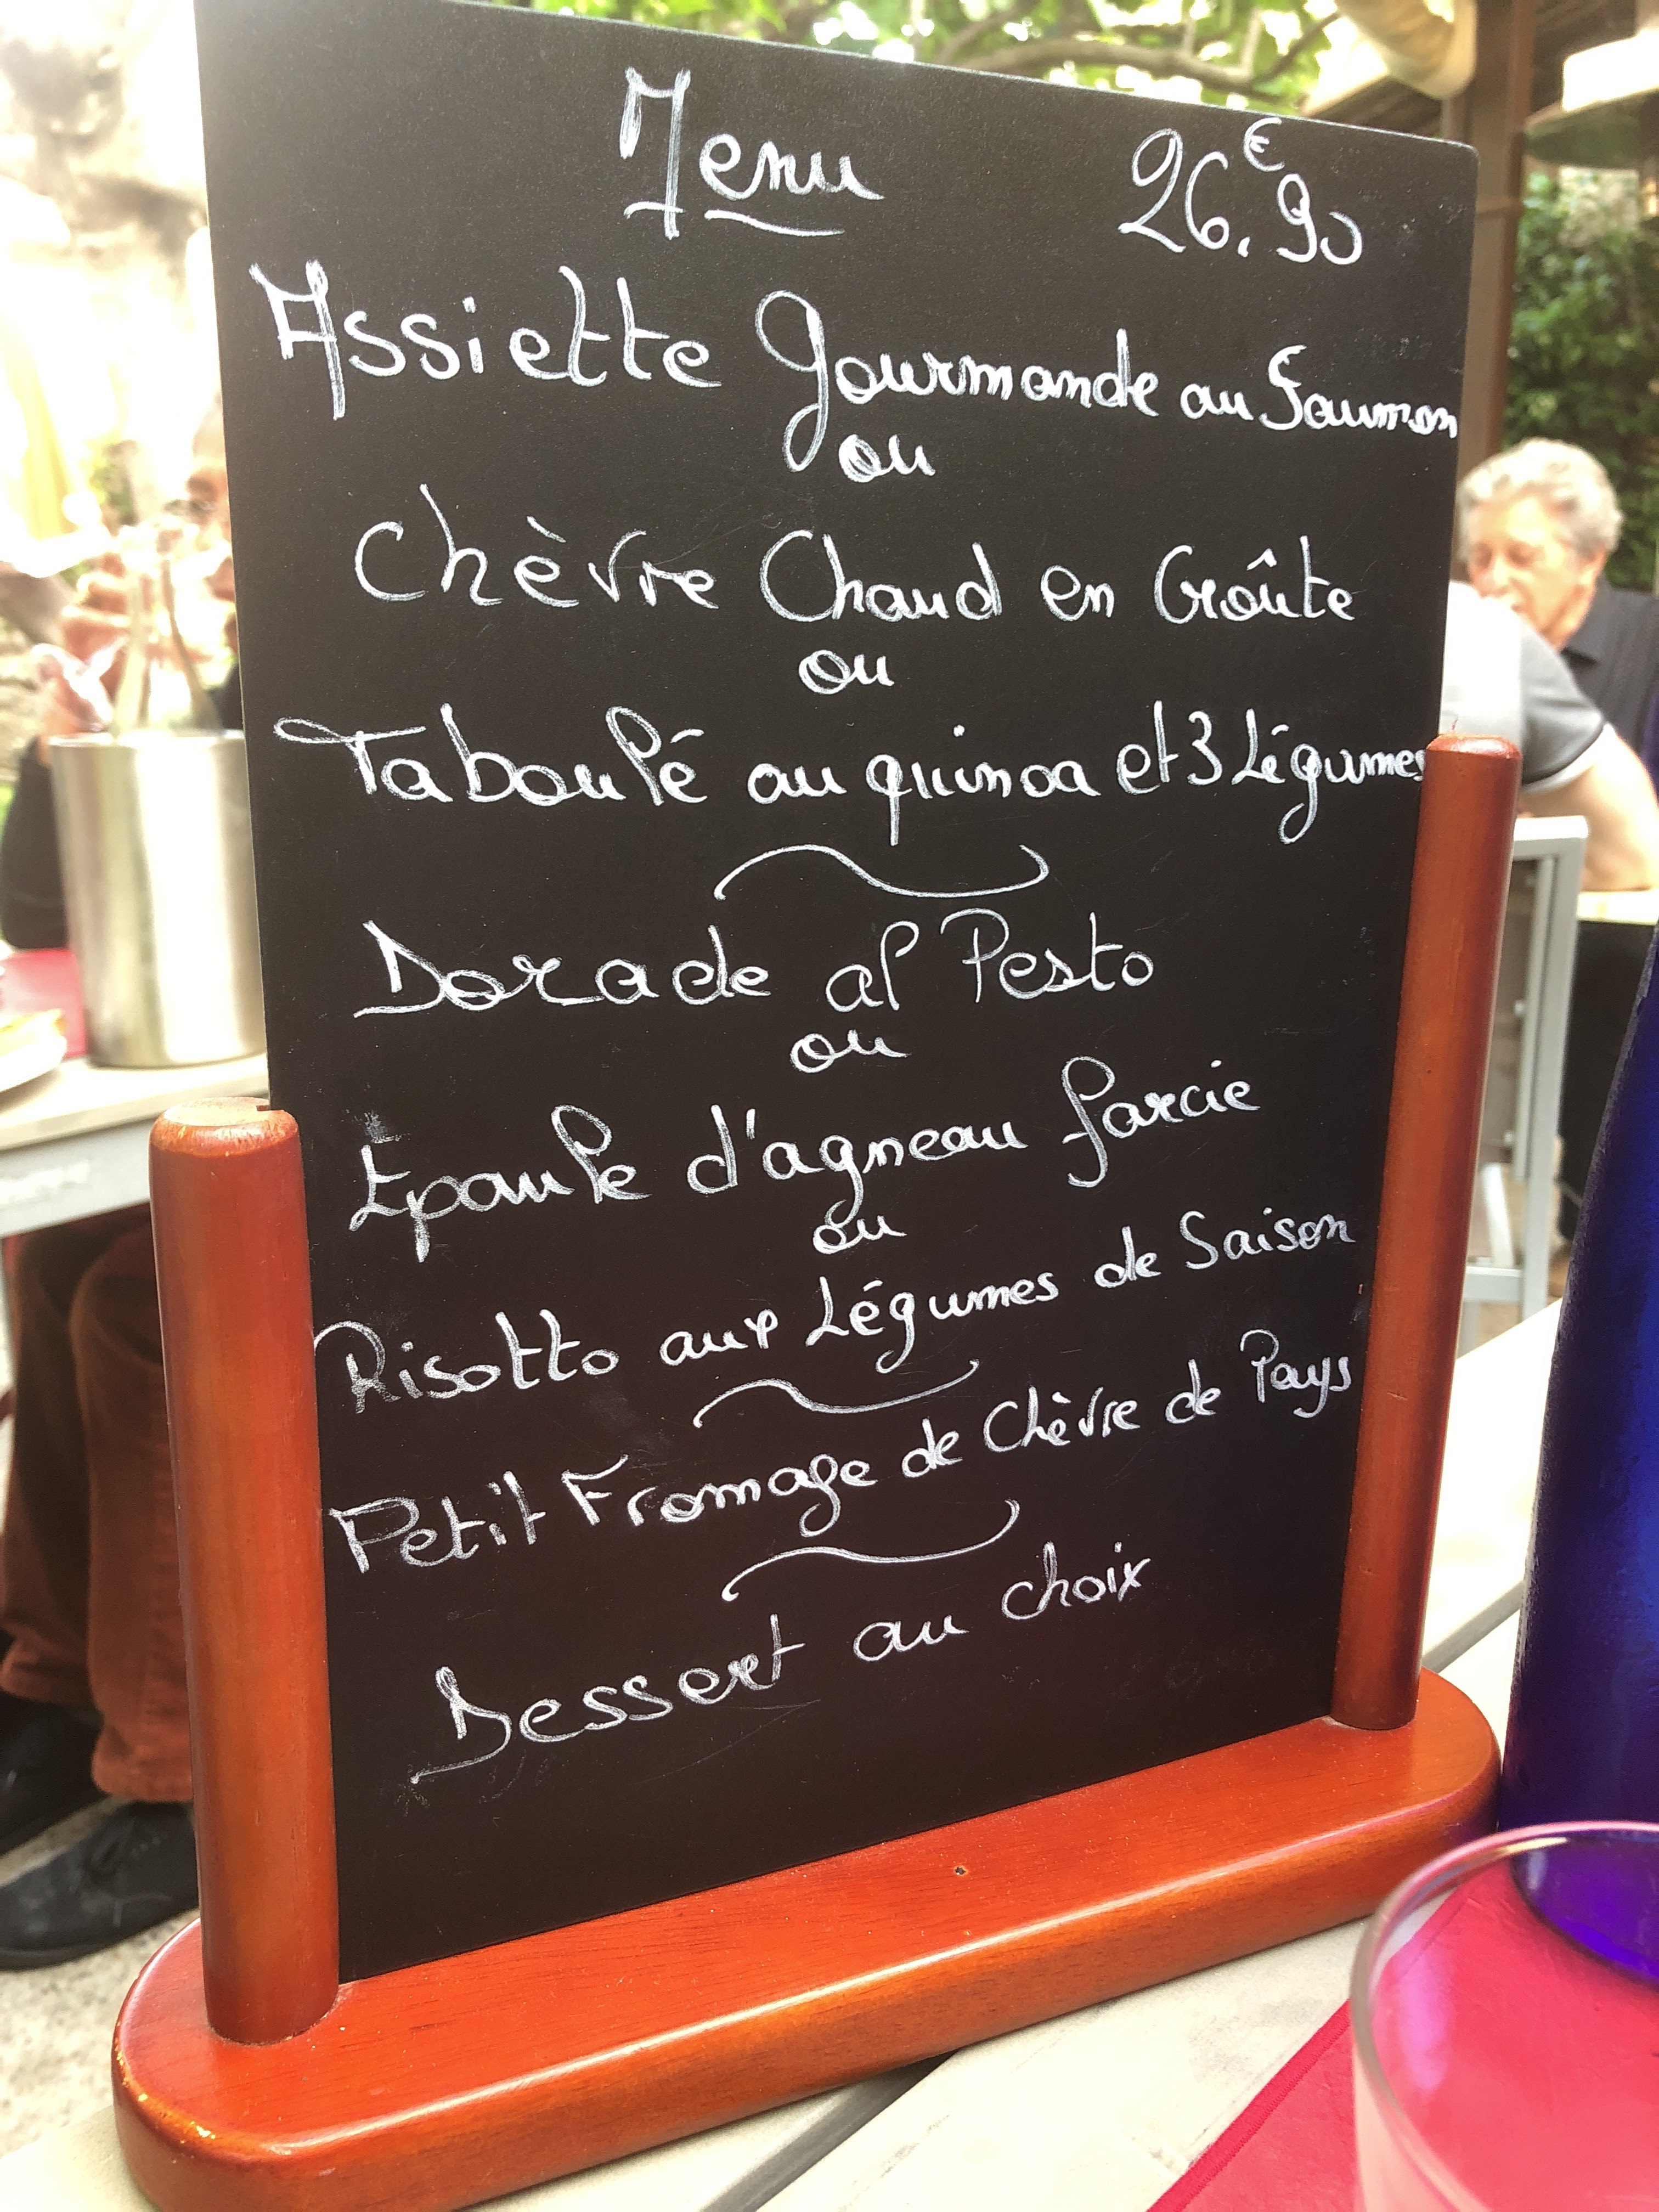 Menu 26.€90
Assiette Gourmande au Saumon
ou
Chèvre Chaud en Croûte
ou
Taboulé au quinoa et 3 Légumes
Dorade al Pesto
ou
Epaule d'agneau farcie
ou
Risotto aux Légumes de Saison
Petit Fromage de Chèvre de Pays
Dessert au choix